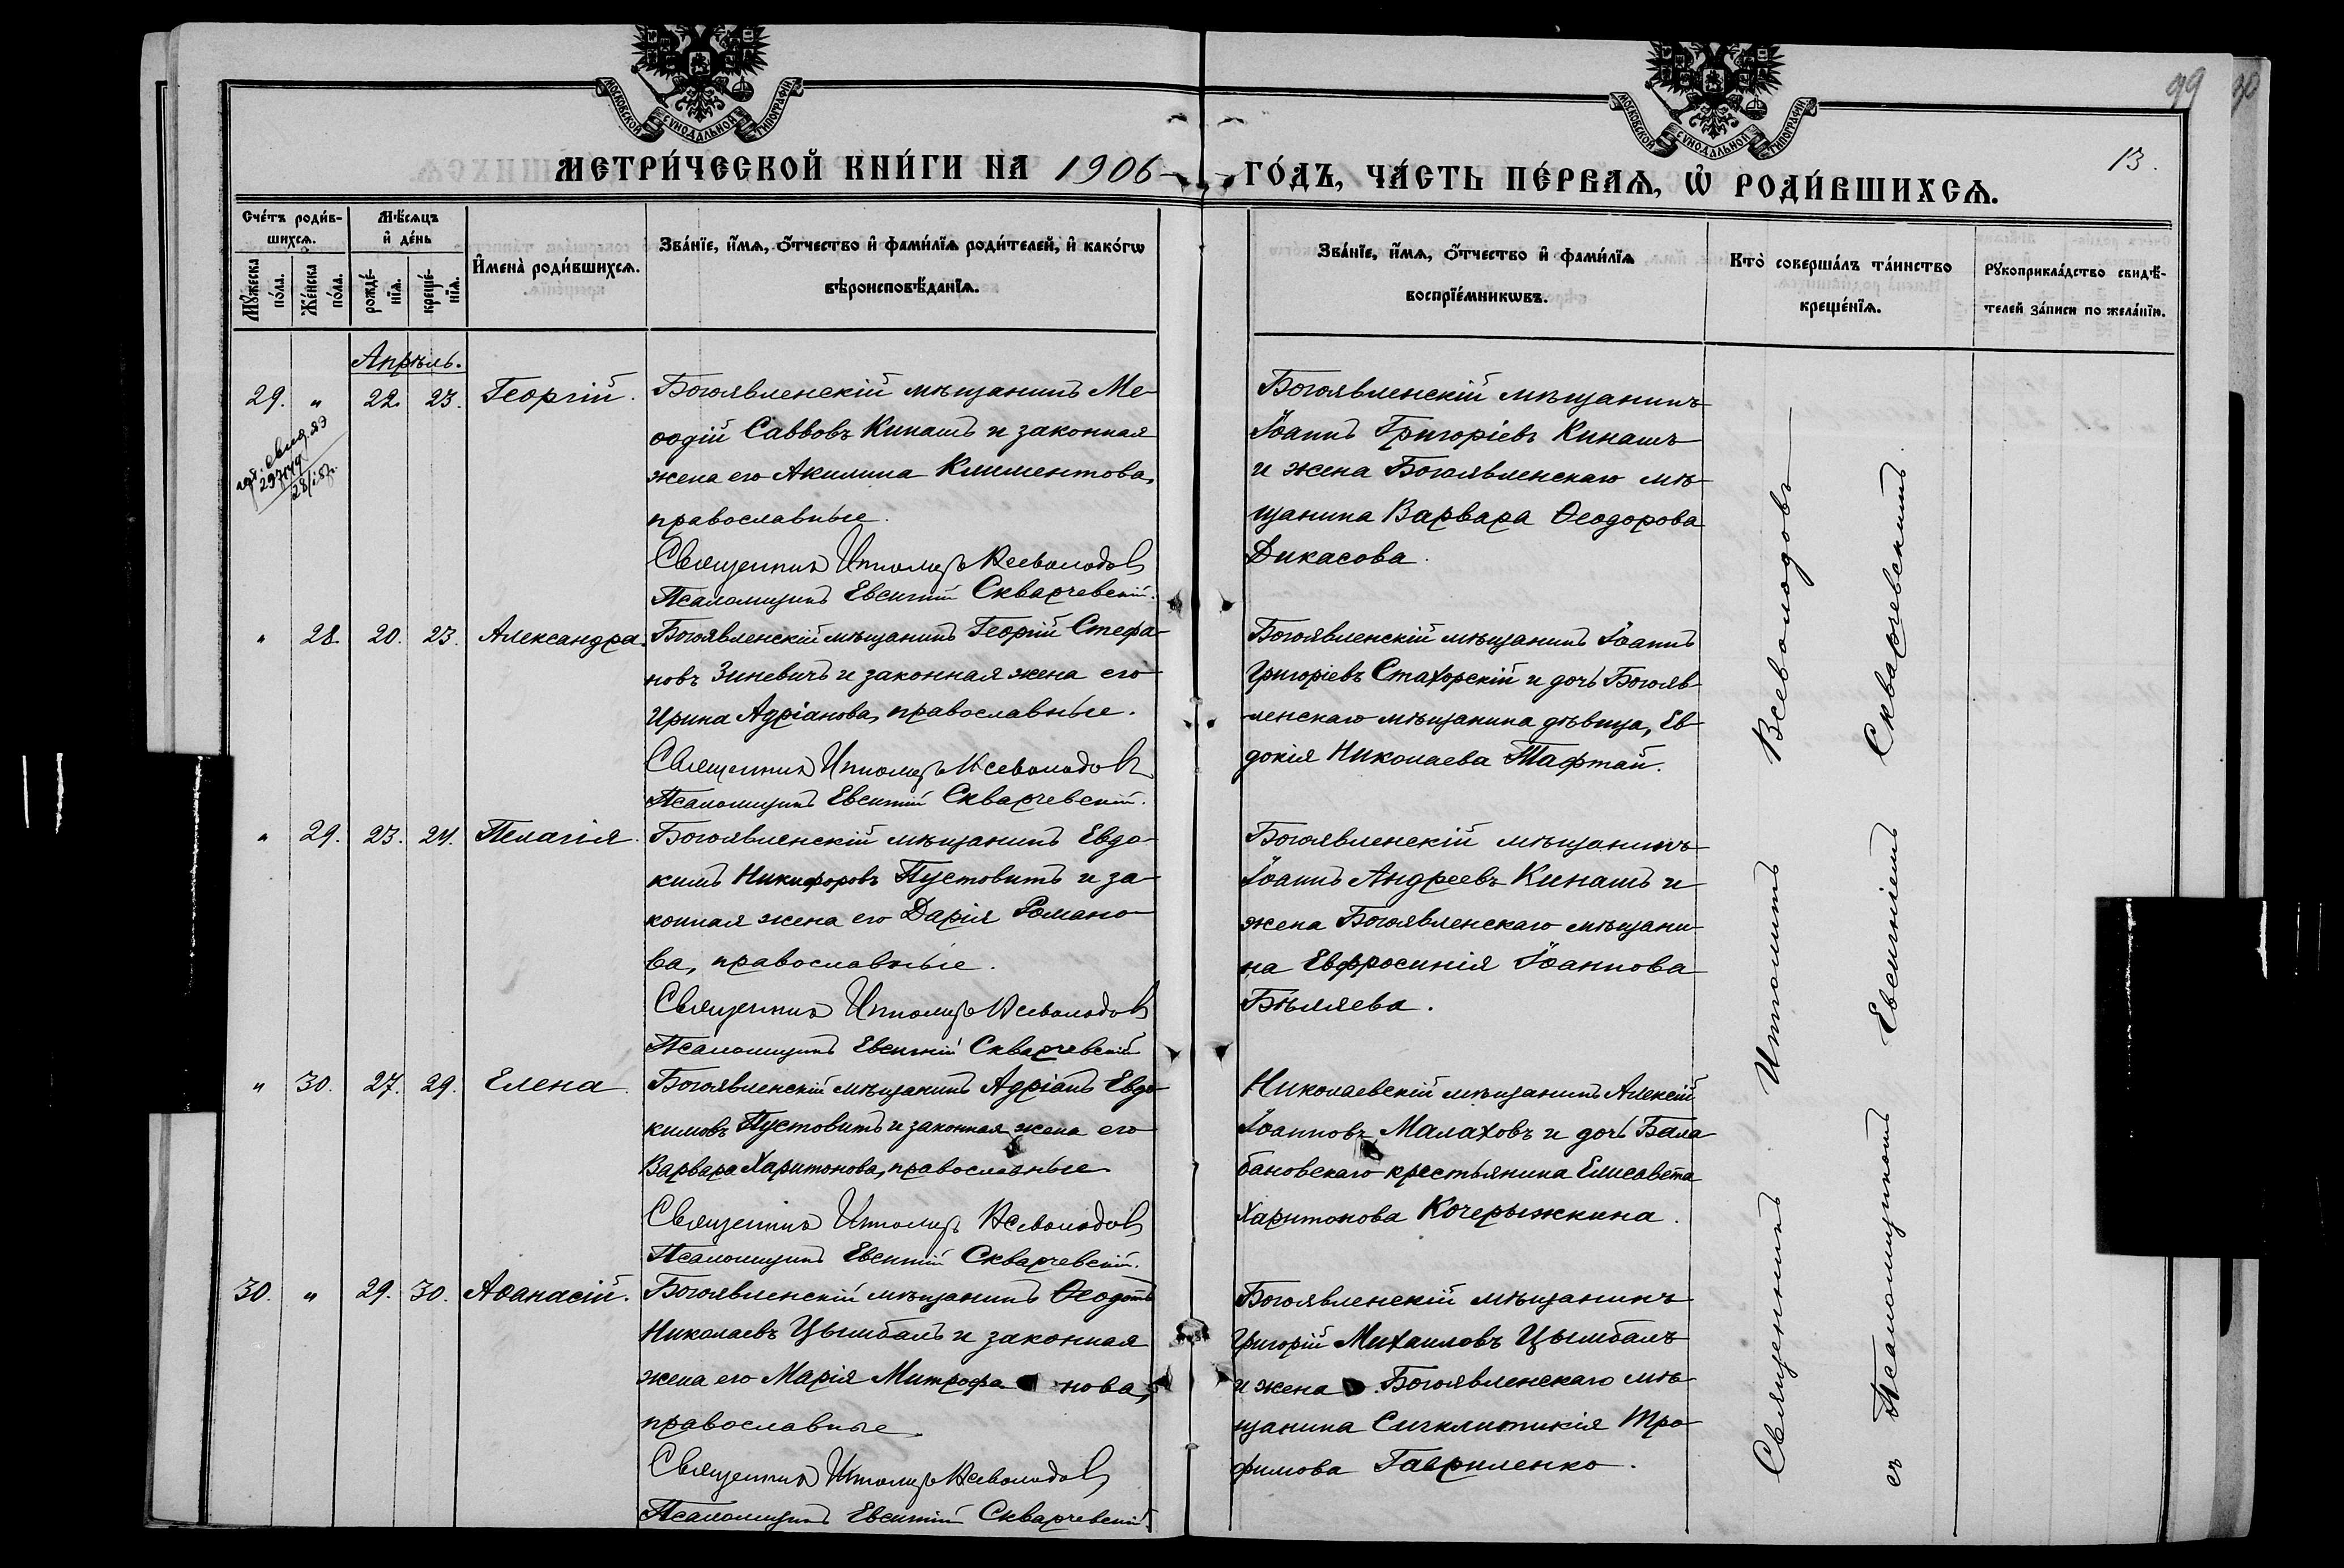 МОСКОВСКОЙ СѴНОДАЛЬНОЙ ТИПОГРАФІИ
МОСКОВСКОЙ СѴНОДАЛЬНОЙ ТИПОГРАФІИ
99
13.
МЕТРИ́ЧЕСКОЙ КНИ́ГИ НА 1906 ГО́ДЪ, ЧА́СТЬ ПЕ́РВАѦ, Ѡ҆ РОДИ́ВШИХСѦ.
Сче́тъ роди́в-
шихсѧ.
Мꙋ́жеска по́ла.
Же́нска по́ла.
Мѣ́сѧцъ
и҆ де́нь
рожде́-
нїѧ.
креще́-
нїѧ.
И҆мена̀ роди́вшихсѧ.
Зва́нїе, и҆́мѧ, ѻ҆́тчество и҆ фами́лїѧ роди́телей, и҆ како́гѡ
вѣроисповѣ́данїѧ.
Зва́нїе, и҆́мѧ, ѻ҆́тчество и҆ фами́лїѧ
воспрїе́мникѡвъ.
Кто̀ соверша́лъ та́инство
креще́нїѧ.
Рꙋкоприкла́дство свидѣ́-
телей за́писи по жела́нїю.
Апрѣль.
29. " 22. 23. Георгій.
Богоявленскій мѣщанинъ Ме-
ѳодій Саввовъ Кинашъ и законная
жена его Акилина Климентова,
православные.
Священникъ Ипполитъ Всеволодовъ
Псаломщикъ Евсигній Скварчевскій.
Богоявленскій мѣщанинъ
Іоаннъ Григоріевъ Кинашъ
и жена Богоявленскаго мѣ-
щанина Варвара Ѳеодорова
Дикасова.
" 28. 20. 23. Александра.
Богоявленскій мѣщанинъ Георгій Стефа-
новъ Зиневичъ и законная жена его
Ирина Адріанова, православные.
Священникъ Ипполитъ Всеволодовъ
Псаломщикъ Евсигній Скварчевскій.
Богоявленскій мѣщанинъ Іоаннъ
Григоріевъ Стахорскій и дочь Богояв-
ленскаго мѣщанина дѣвица, Ев-
докія Николаева Тафтай.
" 29. 23. 24. Пелагія.
Богоявленскій мѣщанинъ Евдо-
кимъ Никифоровъ Пустовитъ и за-
конная жена его Дарія Романо-
ва, православные.
Священникъ Ипполитъ Всеволодовъ
Псаломщикъ Евсигній Скварчевскій
Богоявленскій мѣщанинъ
Іоаннъ Андреевъ Кинашъ и
жена Богоявленскаго мѣщани-
на Евфросинія Іоаннова
Бѣляева.
" 30. 27. 29. Елена.
Богоявленскій мѣщанинъ Адріанъ Евдо-
кимовъ Пустовитъ и законная жена его
Варвара Харитонова, православные
Священникъ Ипполитъ Всеволодовъ
Псаломщикъ Евсигній Скварчевскій.
Николаевскій мѣщанинъ Алексій
Іоанновъ Малаховъ и дочь Бала
бановскаго крестьянина Елисавета
Харитонова Кочерыжкина.
30. " 29. 30. Аѳанасій.
Богоявленскій мѣщанинъ Ѳеодотъ
Николаевъ Цымбалъ и законная
жена его Марія Митрофа нова,
православные.
Священникъ Ипполитъ Всеволодовъ
Псаломщикъ Евсигній Скварчевскій.
Богоявленскій мѣщанинъ
Григорій Михаиловъ Цымбалъ
и жена Богоявленскаго мѣ-
щанина Сигклитикія Тро-
фимова Гавриленко.
Священникъ Ипполитъ Всеволодовъ
съ Псаломщикомъ Евсигніемъ Скварчевскимъ.